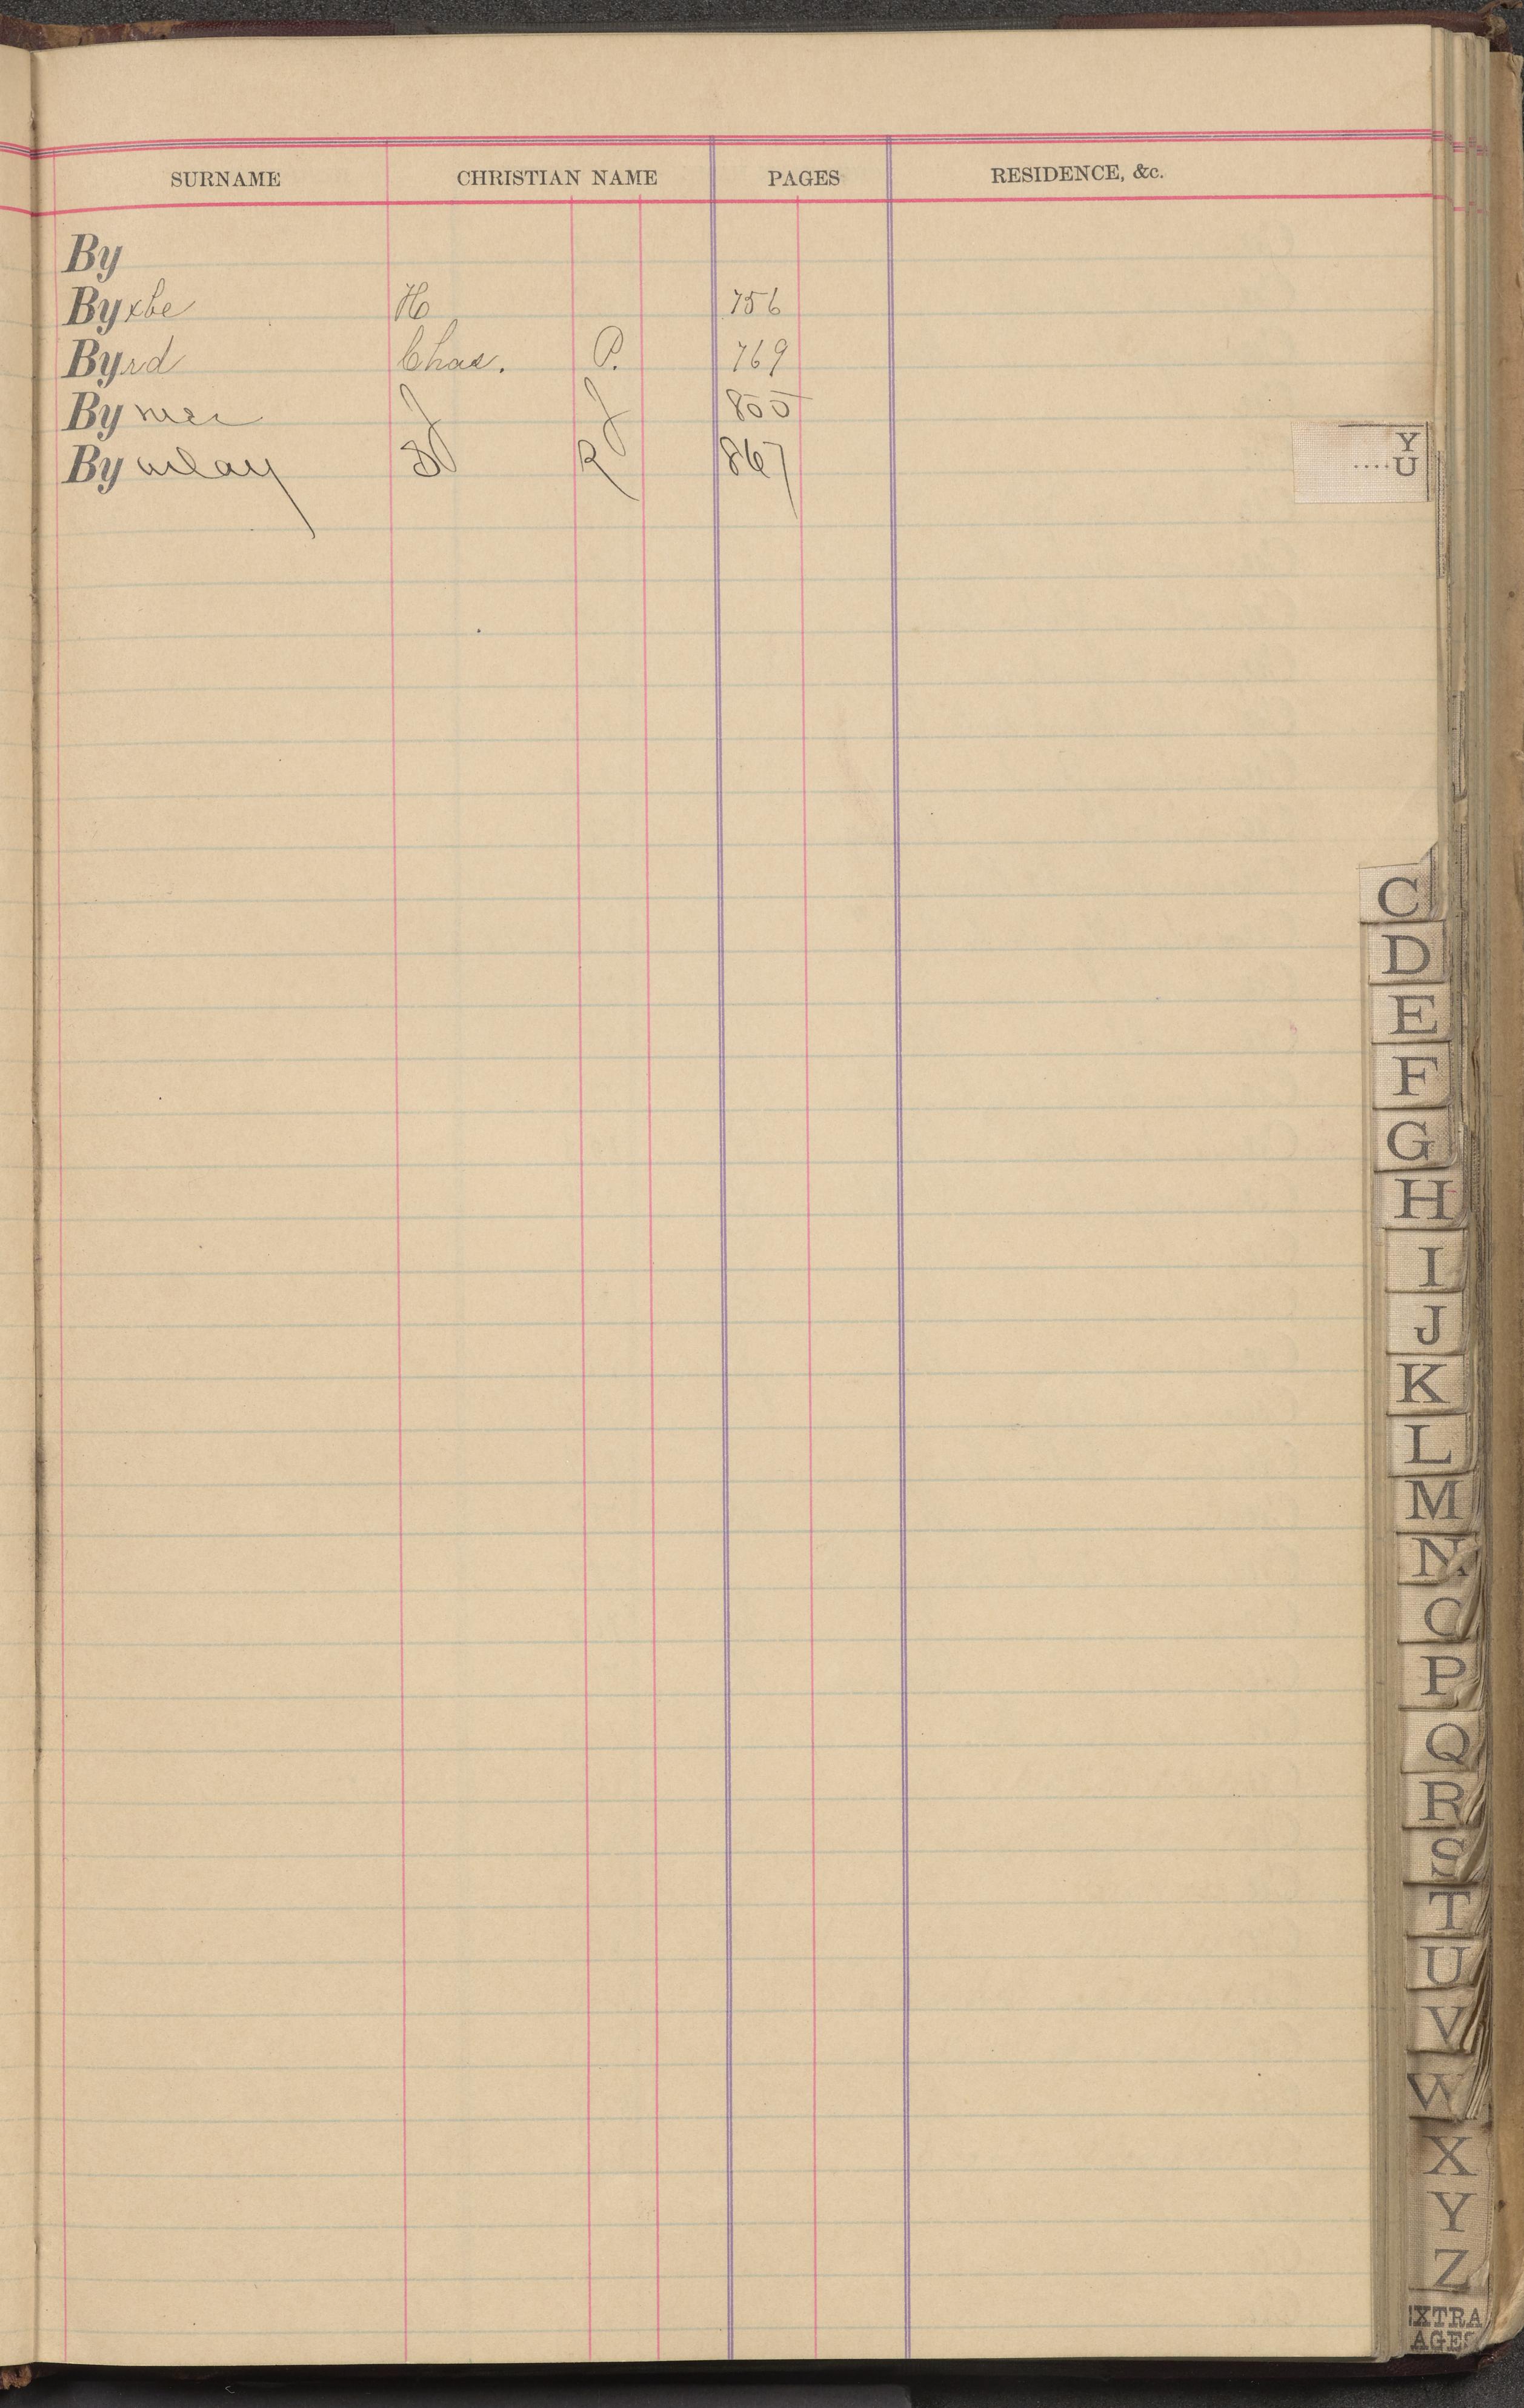 SURNAME CHRISTIAN NAME PAGES RESIDENCE, &c.
By
Byxbe H 756
Byrd Chas. P. 769
By J J 800
By S R 867
Y
....U
C
D
E
F
G
H
I
J
K
L
M
N
O
P
Q
R
S
T
U
V
W
X
Y
Z
EXTRA
AGES